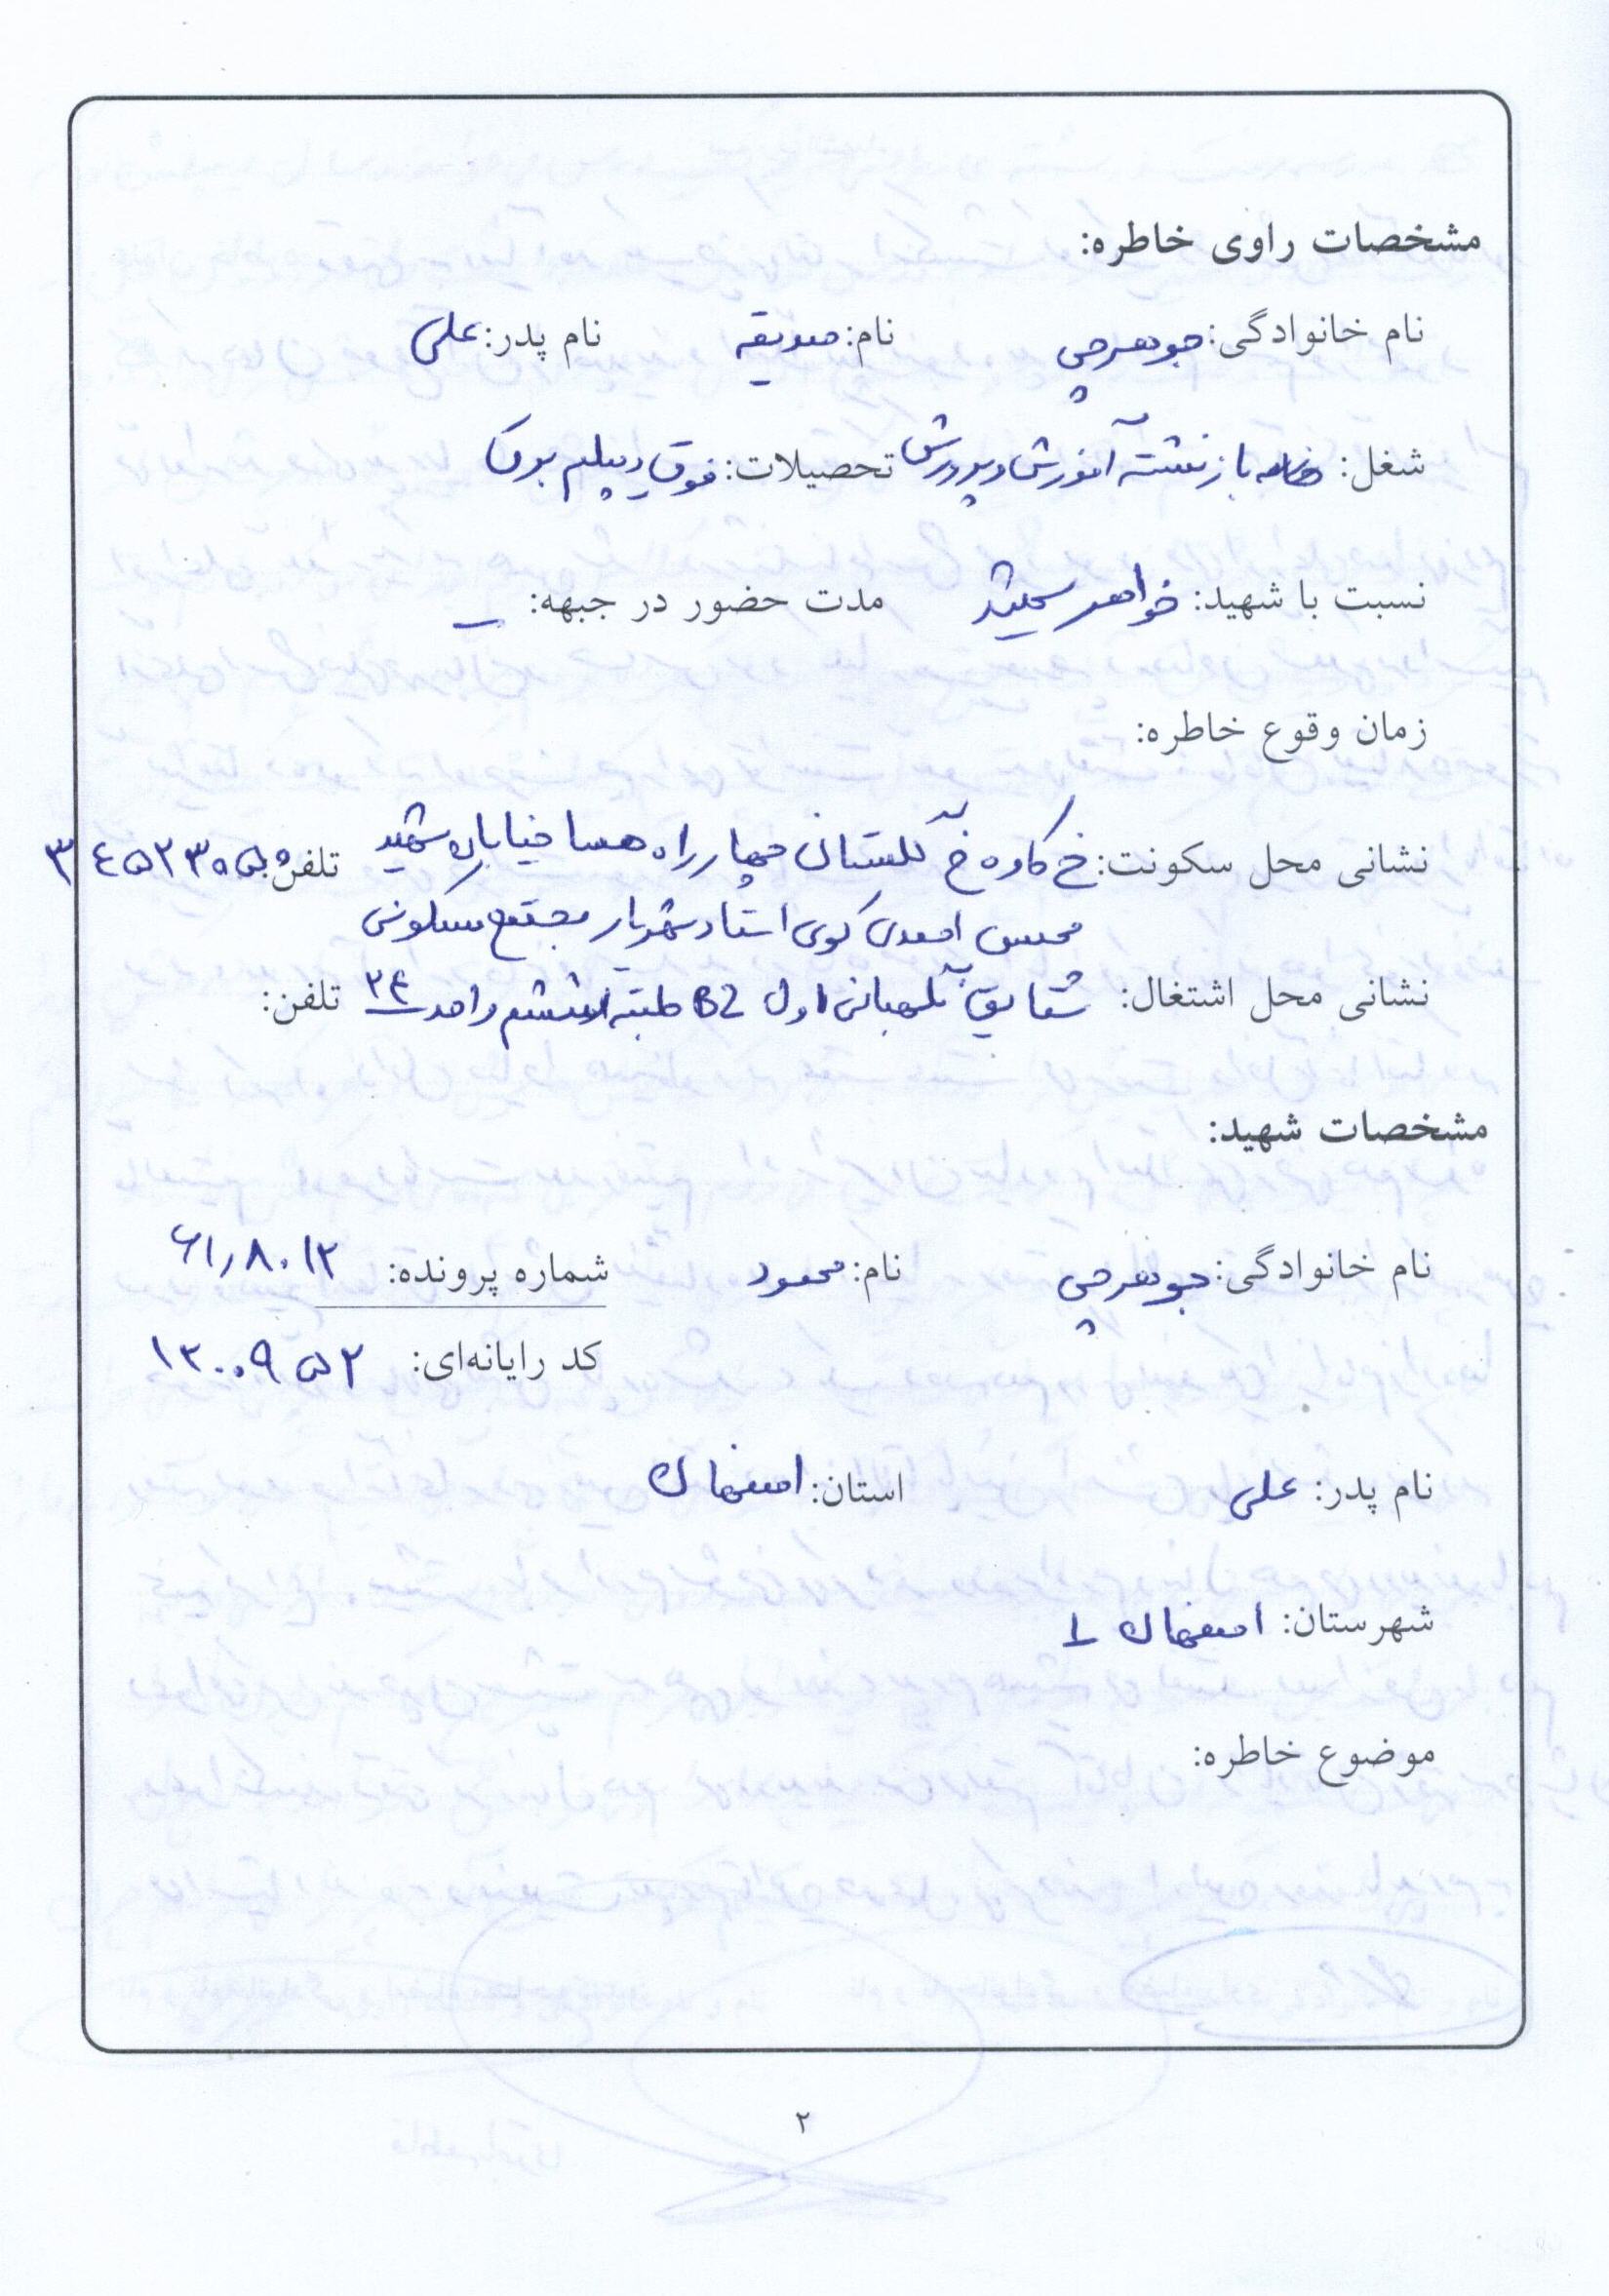 مشخصات راوی خاطره:
نام خانوادگی: جوهرچی نام: صدیقه نام پدر: علی
شغل: بازنشسته آموزش و پرورش تحصیلات: فوق دیپلم
نسبت با شهید: خواهر شهید مدت حضور در جبهه: –
زمان وقوع خاطره:
نشانی محل سکونت: خ کاوه خ گلستان چهارراه همسا خیابان شهید تلفن:
محسن احمدی کوی استاد شهریار مجتمع مسکونی
نشانی محل اشتغال: شقایق نگهبانی اول B2 طبقه ششم واحد ۲۴ تلفن:
مشخصات شهید:
نام خانوادگی: جوهرچی نام: محمود شماره پرونده: ۶۱٫۸۰۱۲
کد رایانه‌ای: ۱۲۰۰۹۵۲
نام پدر: علی استان: اصفهان
شهرستان: اصفهان ۱
موضوع خاطره:
۲